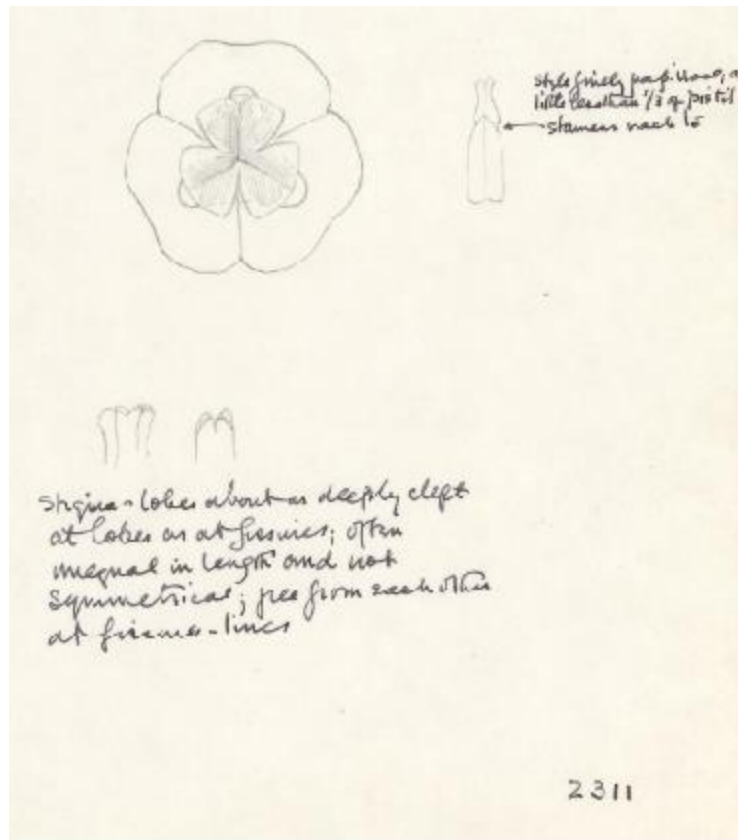 style finely papillose, a
little less than 1/3 of pistil
stamens reach to
Stigma-lobes about as deeply cleft
at lobes as at fissures; often
unequal in length and not
symmetrical; free from each other
at fissure-lines
2311